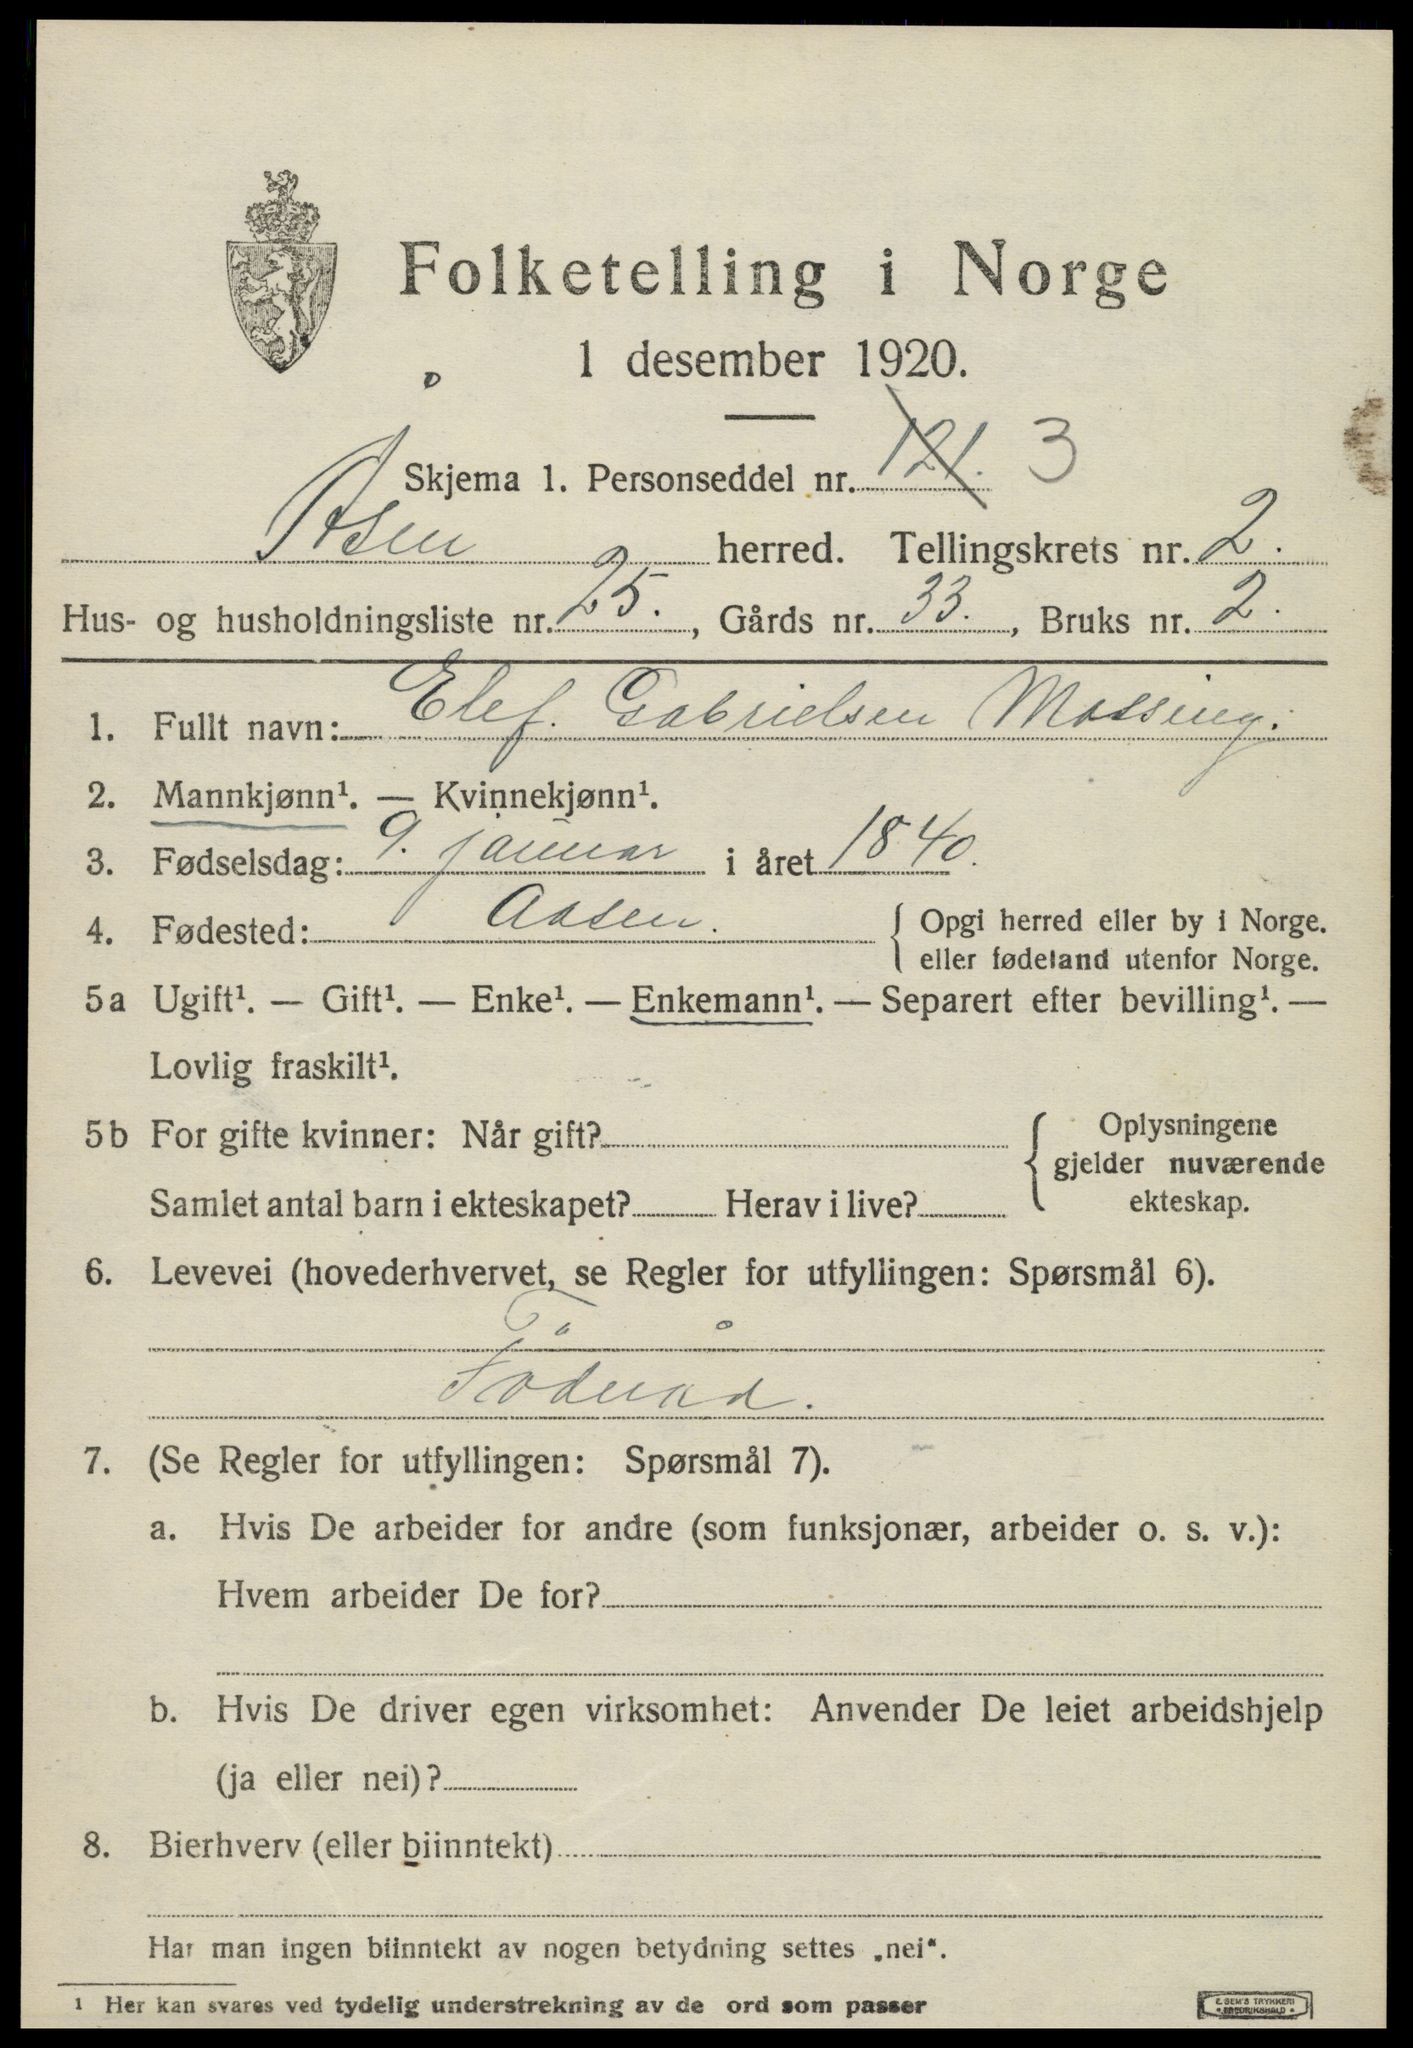 Folketelling i Norge
1 desember 1920.
Skjema 1. Personseddel nr. 121. 3
Åsen herred. Tellingskrets nr. 2.
Hus- og husholdningsliste nr. 25., Gårds nr. 33., Bruks nr. 2.
1. Fullt navn: Elef. Gabrielsen Mossing.
2. Mannkjønn¹. — Kvinnekjønn¹.
3. Fødselsdag: 9. januar i året 1840.
4. Fødested: Aasen. { Opgi herred eller by i Norge.
eller fødeland utenfor Norge.
5a Ugift¹. — Gift¹. — Enke¹. — Enkemann¹. — Separert efter bevilling¹. —
Lovlig fraskilt¹.
5b For gifte kvinner: Når gift? { Oplysningene
gjelder nuværende
ekteskap.
Samlet antal barn i ekteskapet? Herav i live?
6. Levevei (hovederhvervet, se Regler for utfyllingen: Spørsmål 6).
Föderåd.
7. (Se Regler for utfyllingen: Spørsmål 7).
a. Hvis De arbeider for andre (som funksjonær, arbeider o. s. v.):
Hvem arbeider De for?
b. Hvis De driver egen virksomhet: Anvender De leiet arbeidshjelp
(ja eller nei)?
8. Bierhverv (eller biinntekt)
Har man ingen biinntekt av nogen betydning settes „nei“.
¹ Her kan svares ved tydelig understrekning av de ord som passer
E. SEM'S TRYKKERI
FREDRIKSHALD